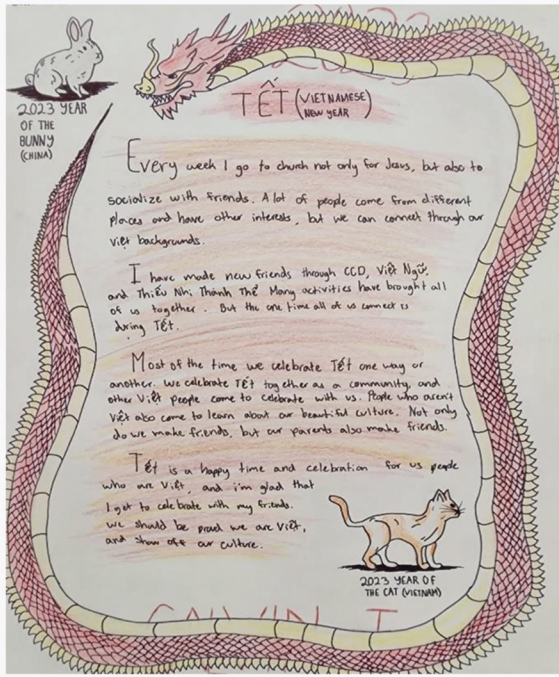 2023 YEAR
OF THE
BUNNY
(CHINA)
TẾT (VIETNAMESE
NEW YEAR)
Every week I go to church not only for Jesus, but also to
socialize with friends. A lot of people come from different
places and have other interests, but we can connect through our
Việt backgrounds.
I have made new friends through CCD, Việt Ngữ,
and Thiếu Nhi Thánh Thể. Many activities have brought all
of us together. But the one time all of us connect is
during Tết.
Most of the time we celebrate Tết one way or
another. We celebrate Tết together as a community, and
other Việt people come to celebrate with us. People who aren't
Việt also come to learn about our beautiful culture. Not only
do we make friends, but our parents also make friends.
Tết is a happy time and celebration for us people
who are Việt, and i'm glad that
I get to celebrate with my friends.
We should be proud we are Việt,
and show off our culture.
2023 YEAR OF
THE CAT (VIETNAM)